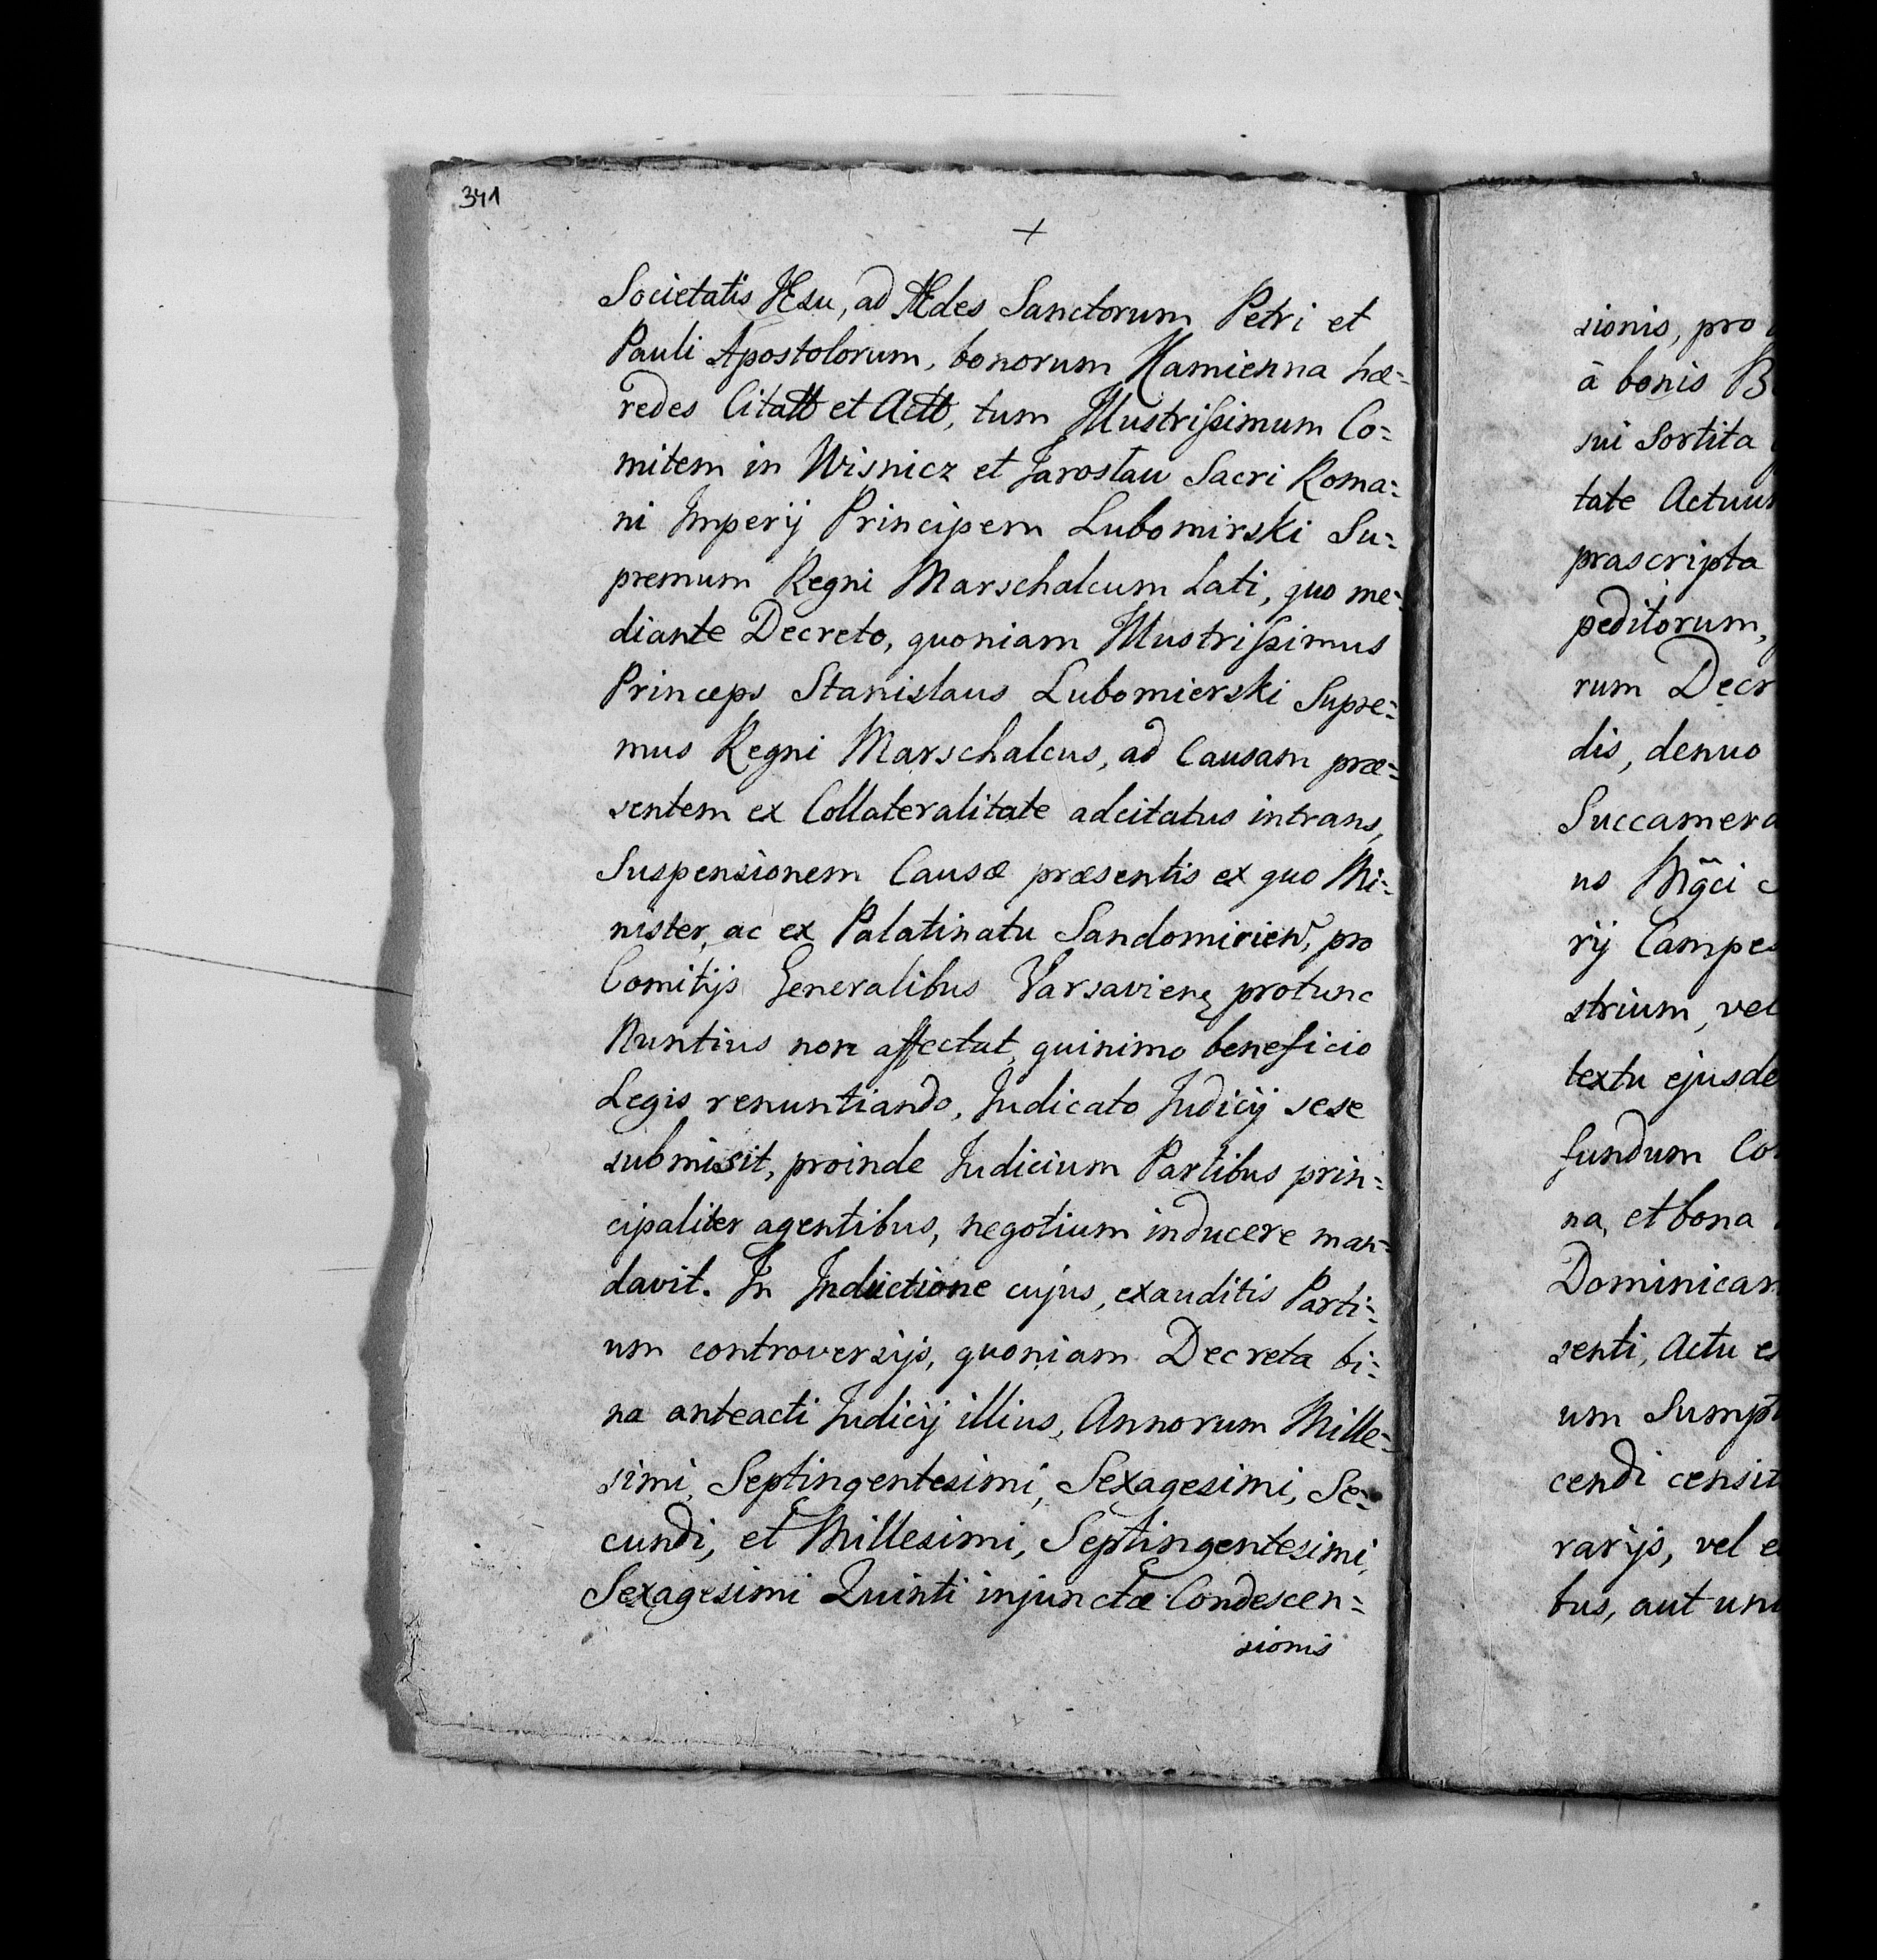 341
+
Societatis JEsu, ad Ædes Sanctorum Petri et
Pauli Apostolorum, bonorum Kamienna hæ=
redes Citatt et Actt, tum Illustrissimum Co=
mitem in Wisnicz et Jarosław Sacri Roma=
ni Imperij Principem Lubomirski Su=
premum Regni Marschalcum Lati, quo me=
diante Decreto, quoniam Illustrissimus
Princeps Stanislaus Lubomierski Supre=
mus Regni Marschalcus, ad Causam præ=
sentem ex Collateralitate adcitatus intrans,
Suspensionem Causæ præsentis ex quo Mi=
nister, ac ex Palatinatu Sandomirien, pro
Comitijs Generalibus Varsavien protunc
Nuntius non affectat, quinimo beneficio
Legis renuntiando, Judicato Judicij sese
submisit, proinde Judicium Partibus prin=
cipaliter agentibus, negotium inducere man=
davit. In Inductione cujus, exauditis Parti=
um controversijs, quoniam Decreta bi=
na anteacti Judicij illius, Annorum Mille=
simi, Septingentesimi, Sexagesimi, Se=
cundi, et Millesimi, Septingentesimi,
Sexagesimi Quinti injunctæ Condescen=
sionis
sionis, pro
à bonis
sui Sortita
tate
præscripta
peditorum,
rum
dis, denuo
us Mgci
rij
strium, vel
textu
fundum
na, et bona
senti, Actu
um
cendi
rarijs, vel
bus, aut